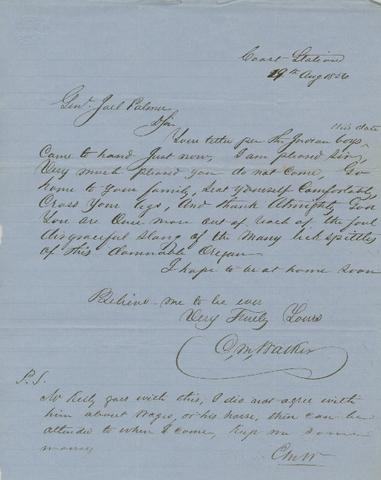 Coast Station
19th Aug 1856
Genl. Joel Palmer
Sir
this date
Your letter per the Indian boys,
Came to hand Just now, I am pleased Sir,
Very much pleased you do not Come, Go
home to your family, Seat yourself Comfortably,
Cross your legs, And thank Almighty God
You are Once more out of reach of the foul
disgraceful slang of the Many lick spittles
of this damnable Oregon
I hope to be at home soon
Believe me to be ever
Very Truly Yours
C, M, Walker
P.S.
Mr Kelly goes with this, I did not agree with
him about wages, or his horse, this can be
attended to when I come, keep me some
money
CMW